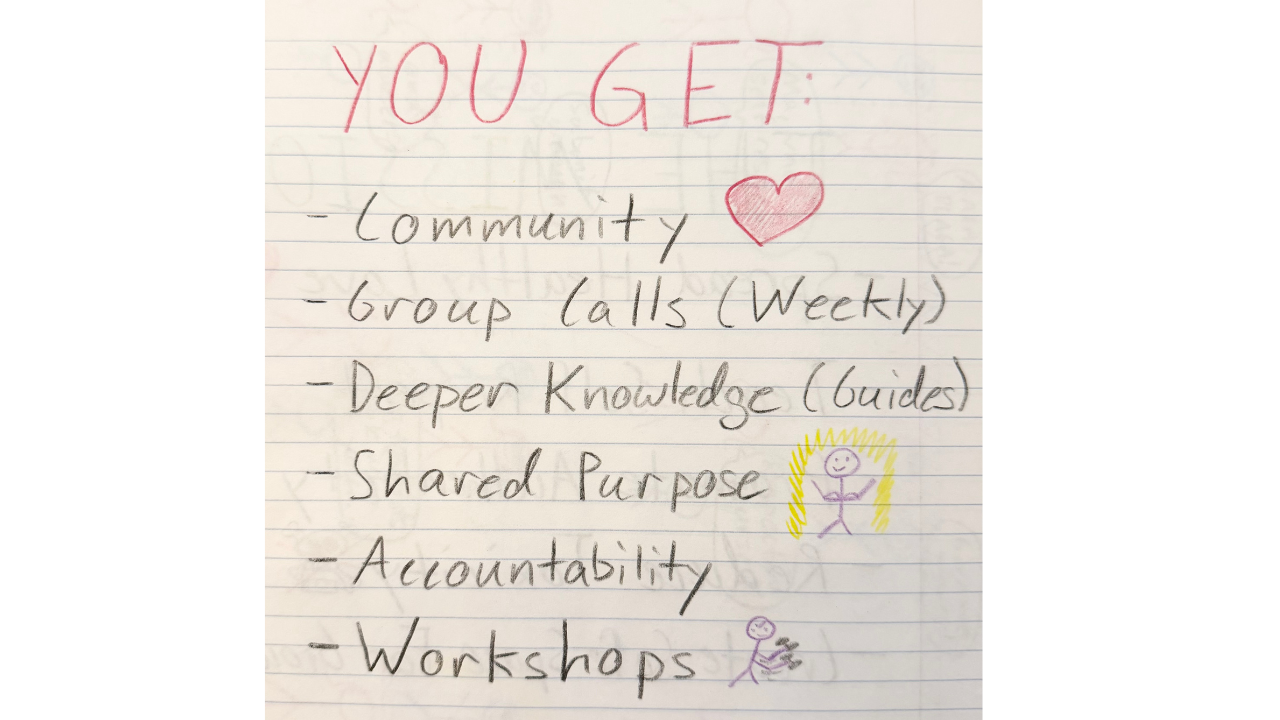 YOU GET:
- Community
- Group Calls (Weekly)
- Deeper Knowledge (Guides)
- Shared Purpose
- Accountability
- Workshops